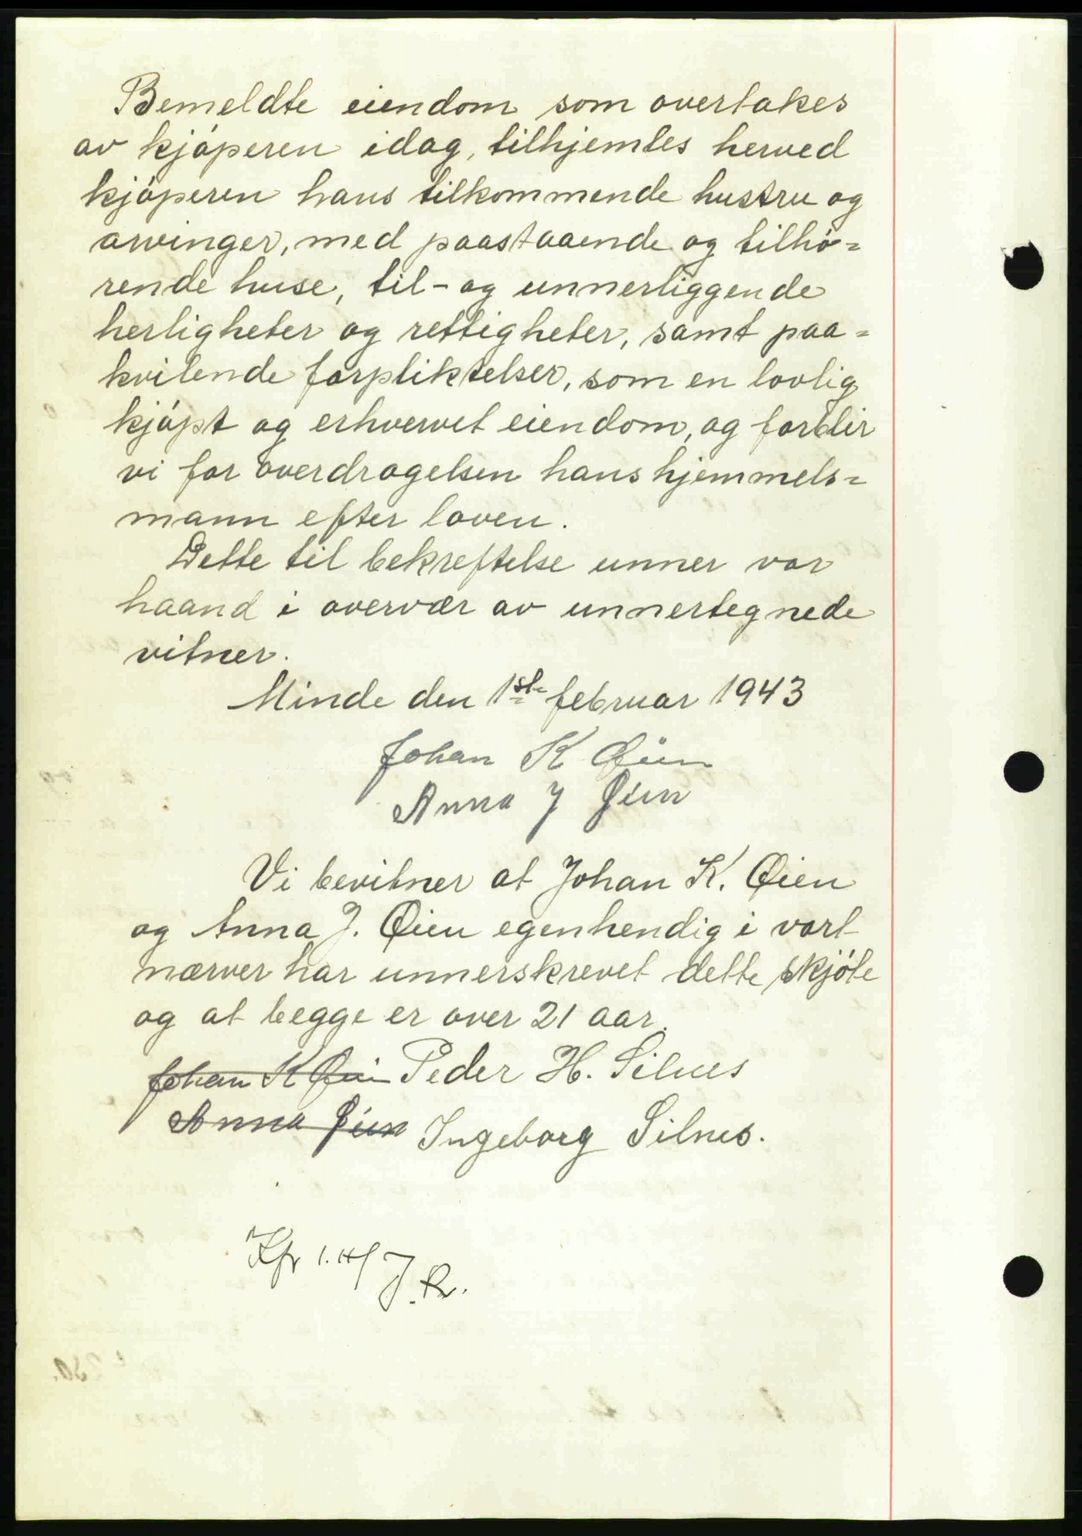 Bemeldte eiendom som overtakes
av kjøperen idag, tilhjemles herved
kjøperen hans tilkommende hustru og
arvinger, med paastaaende og tilhø=
rende huse, til- og unnerliggende
herligheter og rettigheter, samt paa=
kvilende forpliktelser, som en lovlig
kjøpt og erhvervet eiendom, og forblir
vi for overdragelsen hans hjemmels=
mann efter loven.
Dette til bekreftelse unner vor
haand i overvær av unnertegnede
vitner.
Minde den 1ste februar 1943
Johan K Øien
Anna J Øien
Vi bevitner at Johan K. Øien
og Anna J. Øien egenhendig i vort
nærver har unnerskrevet dette skjøte
og at begge er over 21 aar.
Johan K Øien Peder H. Silnes
Anna Øien Ingeborg Silnes.